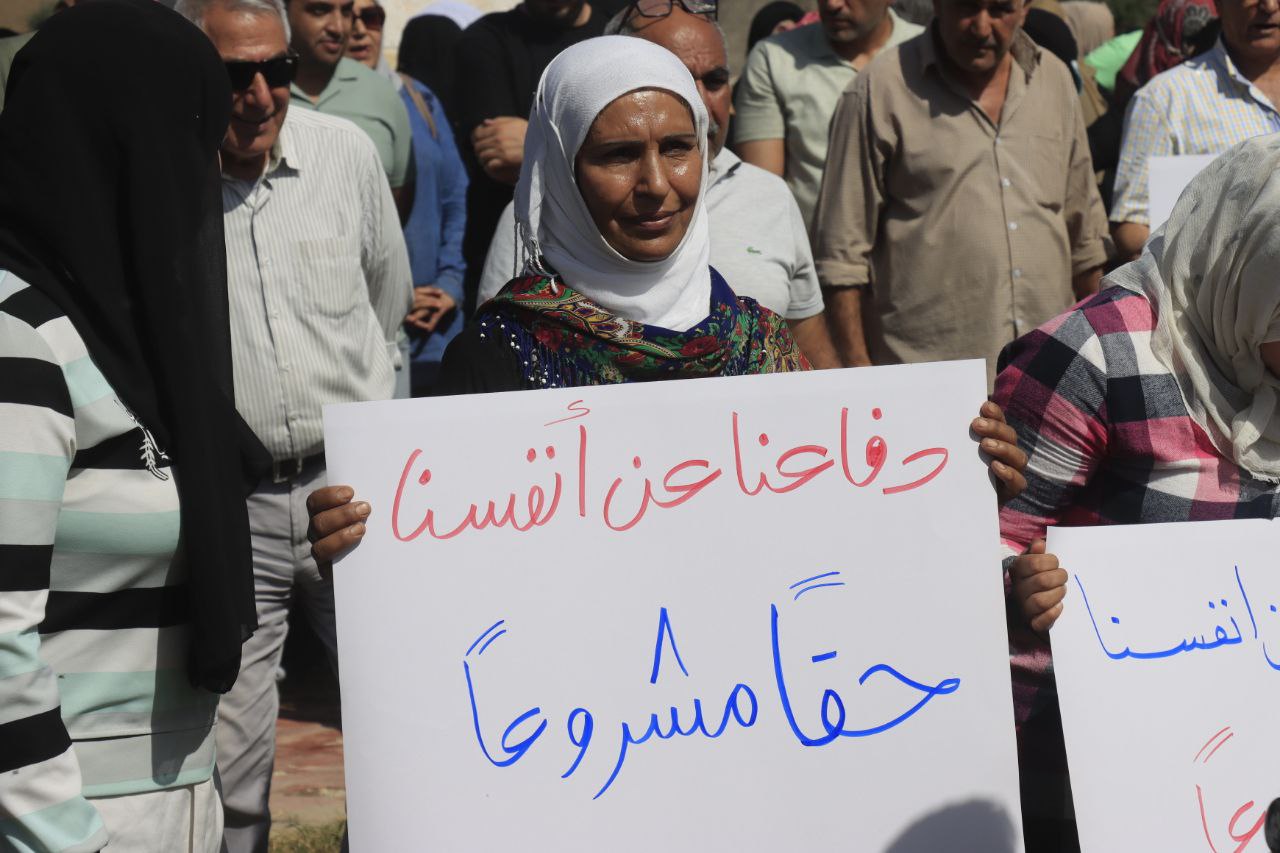 دفاعنا عن أنفسنا
حقاً مشروعاً
انفسنا
عاً